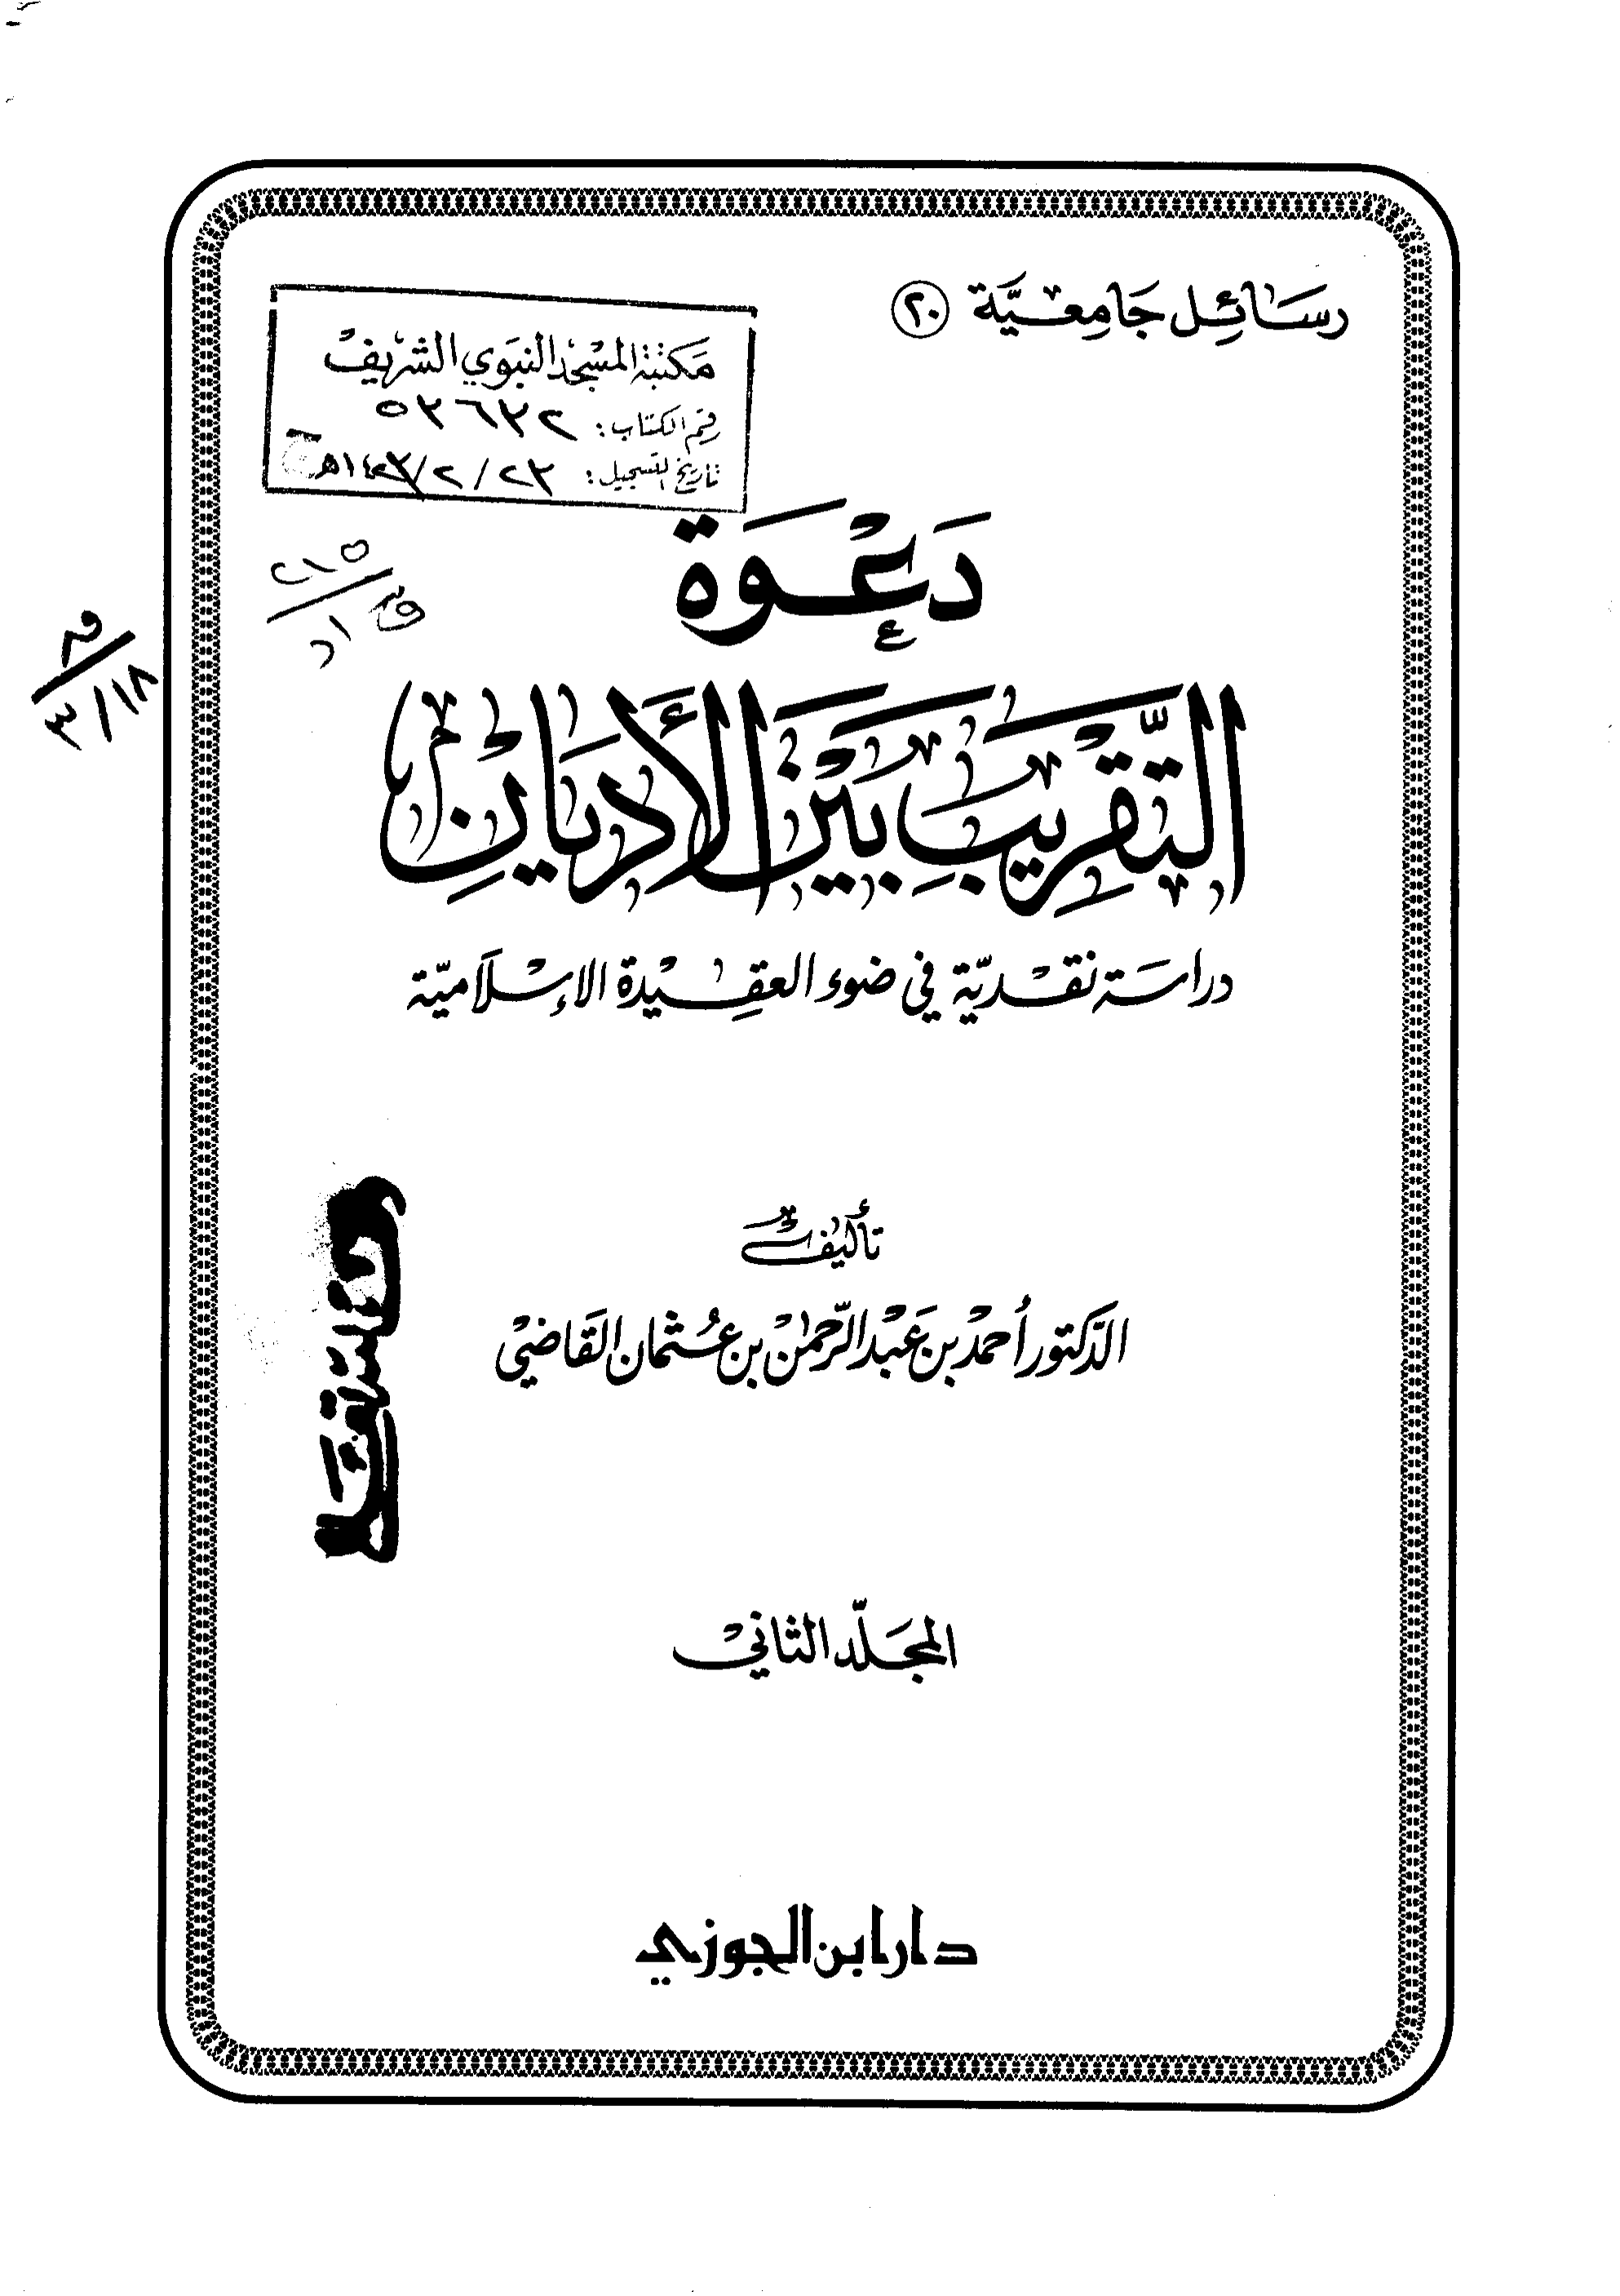 رسائل جامعيّة (٢٠)
مكتبة المسجد النبوي الشريف
رقم الكتاب: ٥٣٦٣٢
تاريخ التسجيل: ٢٣/٢/١٤٢٣هـ
دعوة
التقريب بين الأديان
دراسة نقديّة في ضوء العقيدة الإسلاميّة
تأليف
الدكتور أحمد بن عبد الرحمن بن عثمان القاضي
المجلّد الثاني
دار ابن الجوزي